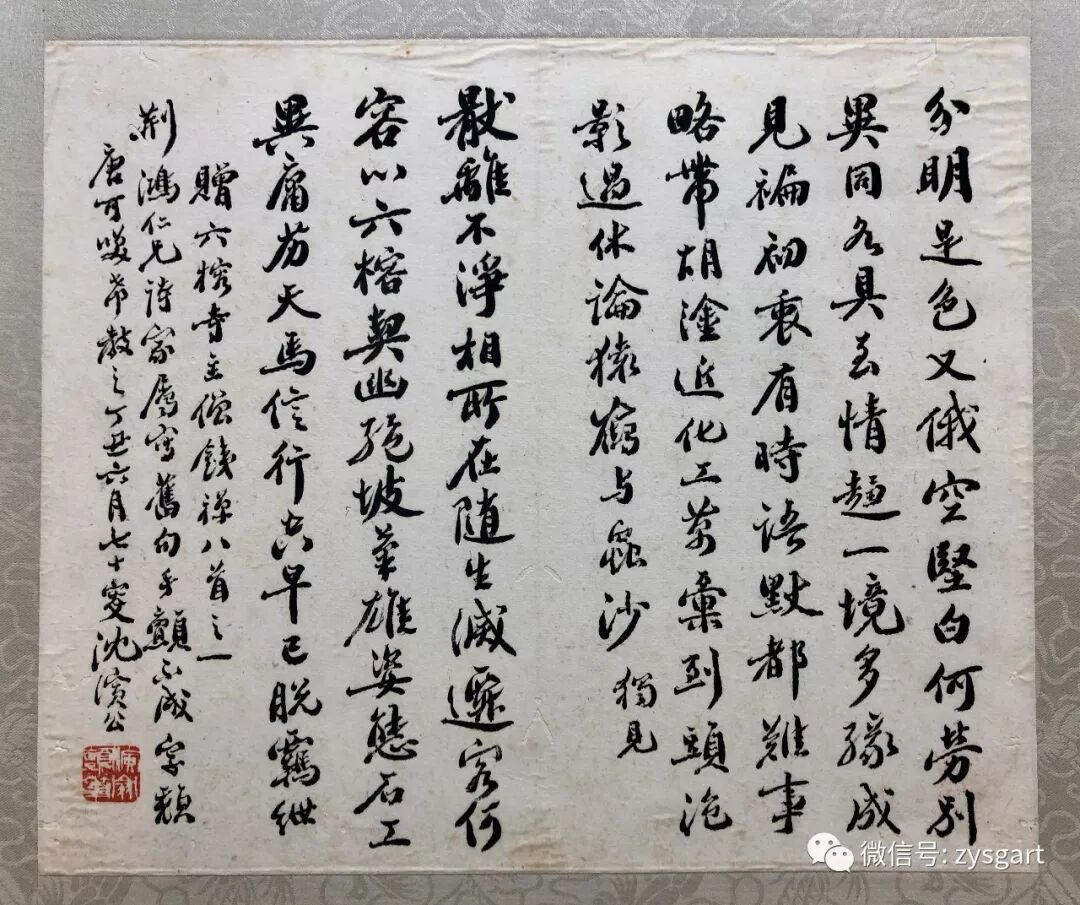 分明是色又俄空堅白何勞別
異同各具情趨一境多緣成
見褊初衷有時語默都難事
略帶胡塗近化工萬彙到頭泡
影過休論猿鶴与蟲沙 獨見
散離不淨相所在隨生滅遷客何
容以六榕契幽絕坡筆雄姿態石工
異庸劣天馬信行空早已脫羈紲
贈六榕寺主僧鐵禪八首之一
荊鴻仁兄詩家屬寫舊句手顫不成字頹
唐可哂希教之丁丑六月七十叟沈演公
微信号: zysgart